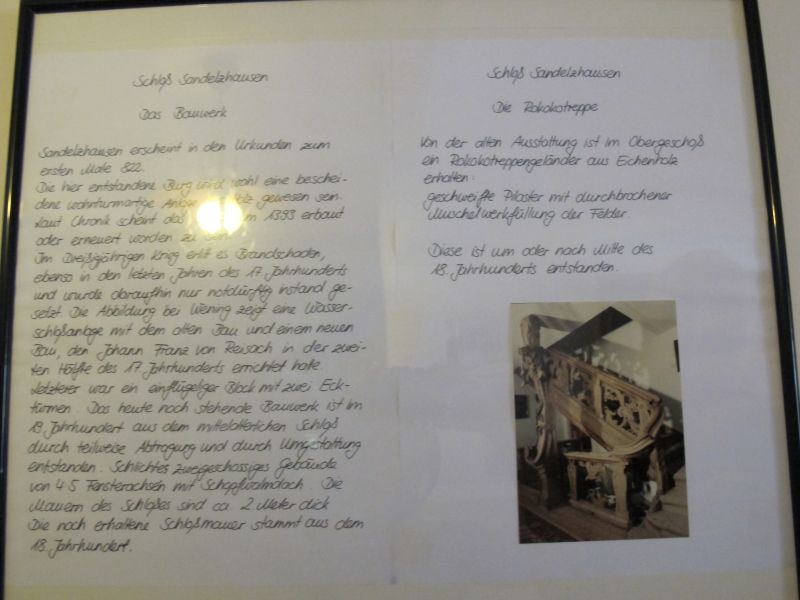 Schloß Sandelzhausen
Das Bauwerk
Sandelzhausen erscheint in den Urkunden zum
ersten Male 822.
Die hier entstandene Burg wird wohl eine beschei-
dene wohnturmartige gewesen sein.
Laut Chronik scheint das um 1393 erbaut
oder erneuert worden zu sein.
Im Dreißigjährigen Krieg erlitt es Brandschaden,
ebenso in den letzten Jahren des 17. Jahrhunderts
und wurde daraufhin nur notdürftig instand ge-
setzt. Die Abbildung bei Wening zeigt eine Wasser-
schloßanlage mit dem alten Bau und einem neuen
Bau, den Johann Franz von Reisach in der zwei-
ten Hälfte des 17. Jahrhunderts errichtet hatte.
Letzterer war ein einflügeliger Block mit zwei Eck-
türmen. Das heute noch stehende Bauwerk ist im
19. Jahrhundert aus dem mittelalterlichen Schloß
durch teilweise Abtragung und durch Umgestaltung
entstanden. Schlichtes zweigeschossiges Gebäude
von 4:5 Fensterachsen mit Schopfwalmdach. Die
Mauern des Schloßes sind ca. 2 Meter dick
Die noch erhaltene Schloßmauer stammt aus dem
18. Jahrhundert.
Schloß Sandelzhausen
Die Rokokotreppe
Von der alten Ausstattung ist im Obergeschoß
ein Rokokotreppengeländer aus Eichenholz
erhalten:
geschweifte Pilaster mit durchbrochener
Muschelwerkfüllung der Felder.
Diese ist um oder nach Mitte des
18. Jahrhunderts entstanden.